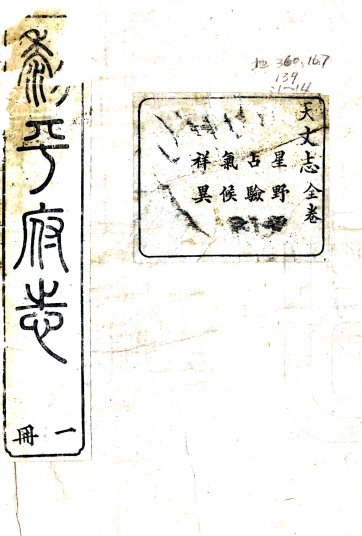 地 360.167
139
1~14
天文志全卷
星野
占驗
氣候
祥異
平府志
一冊